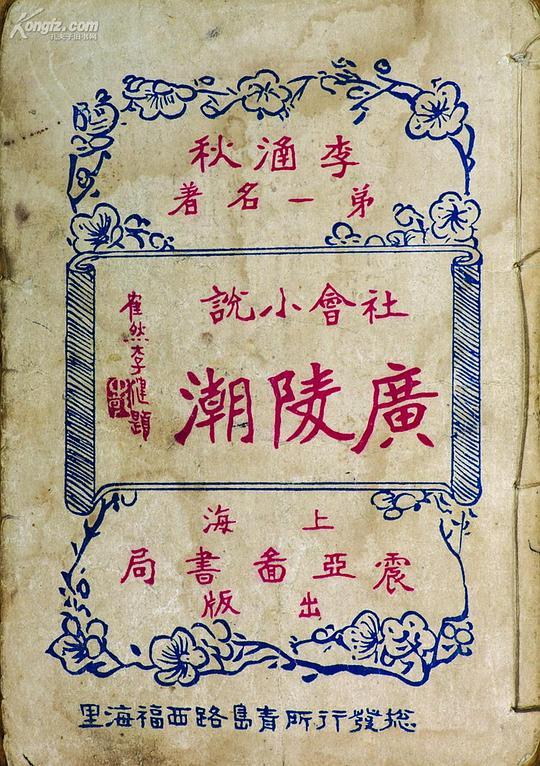 Kongfz.com
孔夫子旧书网
李涵秋
第一名著
社會小說
廣陵潮
李健題
上海
震亞啚書局
出版
總發行所青島路西福海里